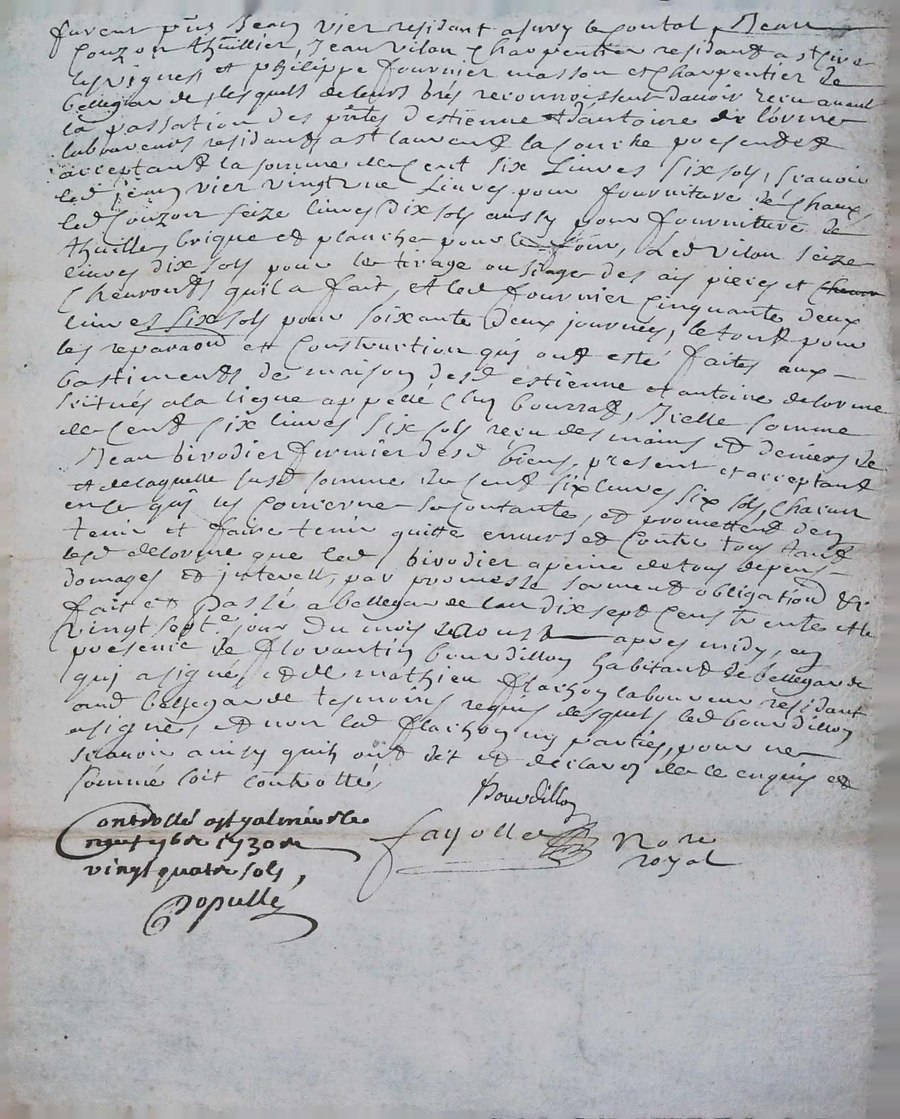 furent p̃ns Jean vier residant a sury le contal, Jean
Couzon thuillier, Jean vilon Charpentier residant a st Cire
les vignes et philippe fournier masson et Charpentier de
bellegarde, lesquels de leurs grés reconnoissent davoir recu avant
la passation des p̃ntes destienne et dantoine delorme
laboureurs residants a st laurent la conche presents et
acceptant la somme de Cent six Livres six sols, scavoir
led Jean vier vingt une Livres pour fourniture de Chaux,
led Couzon seize livres dix sols aussy pour fourniture de
thuilles, brique et planche pour le four, Led vilon seize
livres dix sols pour le tirage ou siage des ais pieces et
Chevronts quil a fait, et led fournier Cinquante deux
livres six sols pour soixante deux journées, le tout pour
les reparaõns et Construction qui ont esté faites aux
bastiments de maison desd estienne et antoine delorme
scitués a la ligue appellé Chez bourrat, Icelle somme
de Cent six livres six sols recu des mains et deniers de
Jean bivodier fermier desd biens, present et acceptant
et de laquelle susd somme de Cent six livres six sols, Chacun
en ce quil les Concerne se Contante, et promettent den
tenir et faire tenir quitte envers et Contre tous tant
lesd delorme que led bivodier a peine de tous depens
domages et interests, par promesse serment obligation &c
fait et passé a bellegarde lan dix sept Cens trente et le
vingt septe jour du mois daoust apres midy, en
presence de florantin bourdillon habitant de bellegarde
qui a signé, et de mathieu flachon laboureur residant
aud bellegarde tesmoins requis desquels led bourdillon
a signé, et non led flachon ny parties, pour ne
scavoir ainsy quils ont dit et declaré de ce enquis et
sommé soit Controllé
Bourdillon
Controllé a st galmier le
neuf 7bre 1730 R
vingt quatre sols,
Populle
fayolle Nore
royal